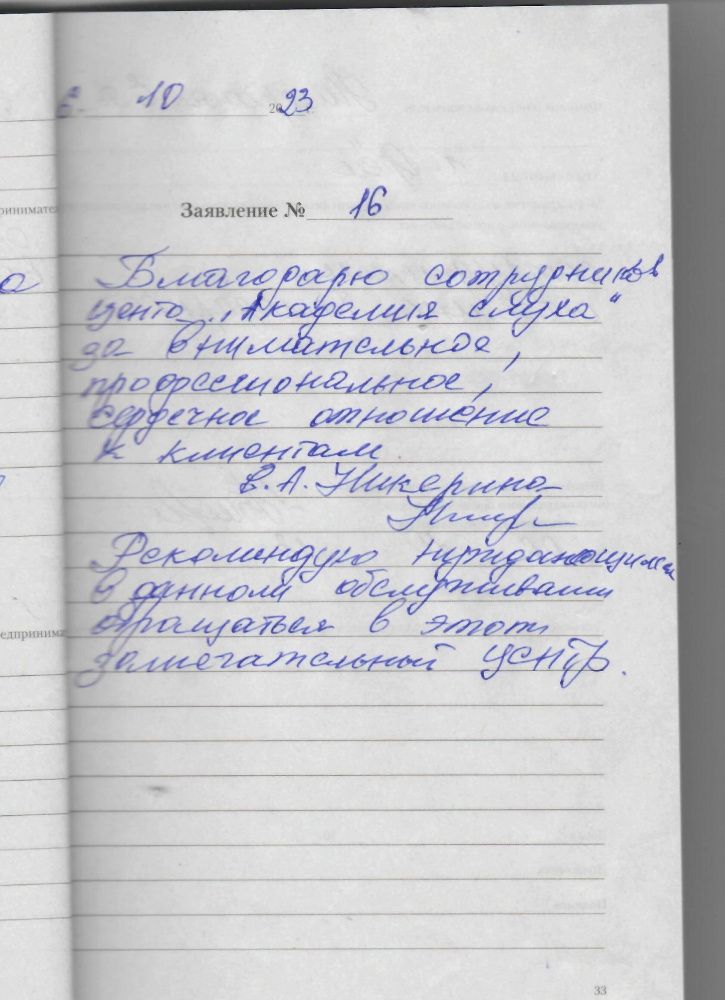 6. 10 2023
Заявление № 16
Благодарю сотрудников
центр „Академия слуха“
за внимательное,
профессиональное,
сердечное отношение
к клиентам
В.А. Никерина
Рекомендую нуждающимся
в данном обслуживании
обращаться в этот
замечательный центр.
ринимател
едпринима
33